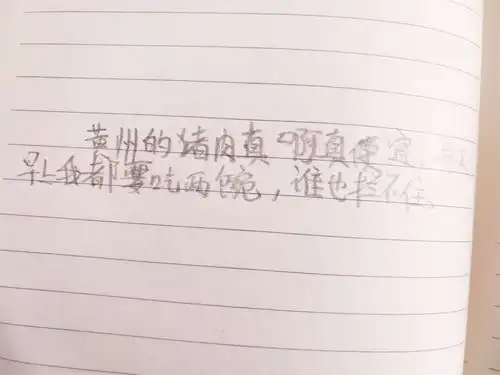 黄州的猪肉真啊真便宜
早上我都要吃两碗，谁也拦不住。